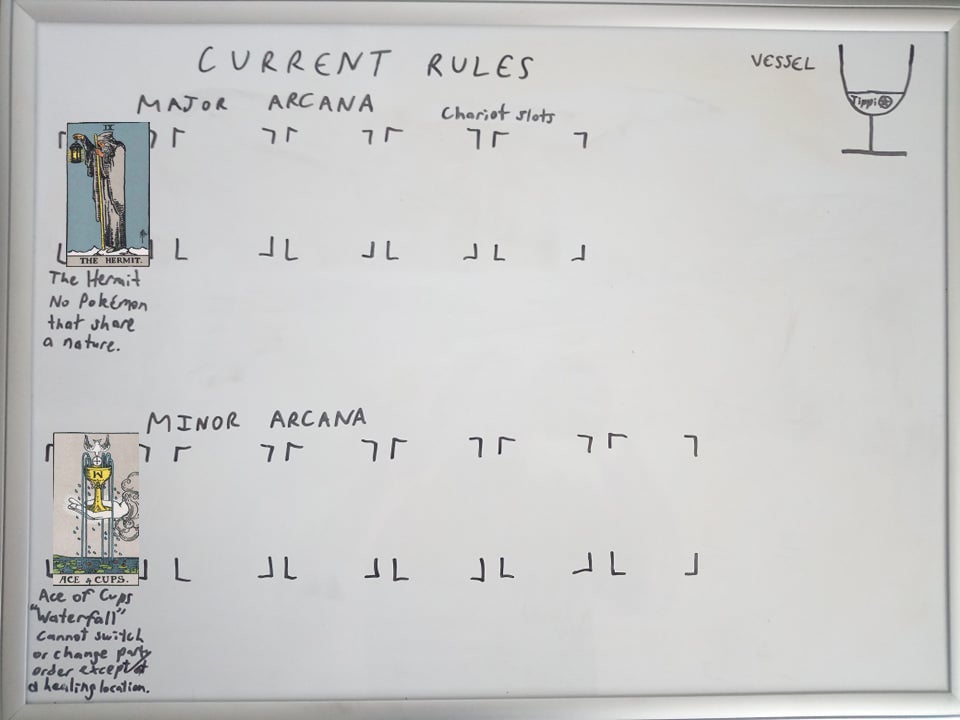 CURRENT RULES
VESSEL
Tippi
MAJOR ARCANA
Chariot slots
IX
THE HERMIT.
The Hermit
No Pokémon
that share
a nature.
MINOR ARCANA
ACE of CUPS.
Ace of Cups
"Waterfall"
Cannot switch
or change party
order except at
a healing location.